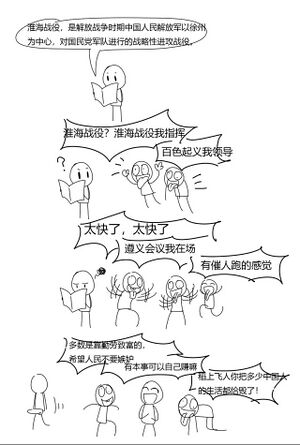 淮海战役,是解放战争时期中国人民解放军以徐州
为中心,对国民党军队进行的战略性进攻战役。
淮海战役?淮海战役我指挥
百色起义我领导
?
太快了,太快了
遵义会议我在场
有催人跑的感觉
多数是靠勤劳致富的,
希望人民不要嫉妒
有本事可以自己赚嘛
稻上飞人你把多少中国人
的生活都给毁了!